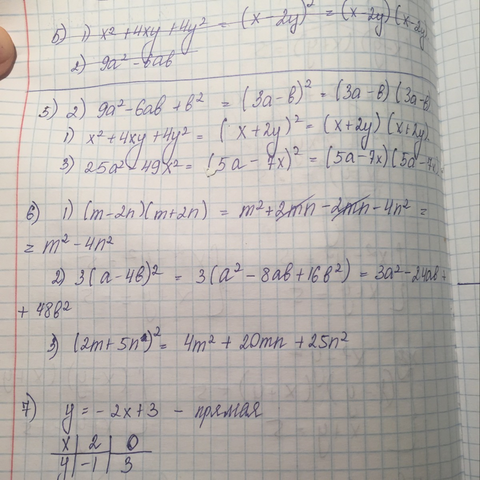 5) 1) x² + 4xy + 4y² = (x - 2y)² = (x-2y)(x-2y)
2) 9a² - 6ab
5) 2) 9a² - 6ab + b² = (3a - b)² = (3a - b)(3a - b
1) x² + 4xy + 4y² = (x + 2y)² = (x + 2y)(x + 2y)
3) 25a² - 49x² = (5a - 7x)² = (5a - 7x)(5a - 7x
6) 1) (m - 2n)(m + 2n) = m² + 2mn - 2mn - 4n² =
= m² - 4n²
2) 3(a - 4b)² = 3(a² - 8ab + 16b²) = 3a² - 24ab +
+ 48b²
3) (2m + 5n)² = 4m² + 20mn + 25n²
7) y = -2x + 3 - прямая
x | 2 | 0
y | -1 | 3